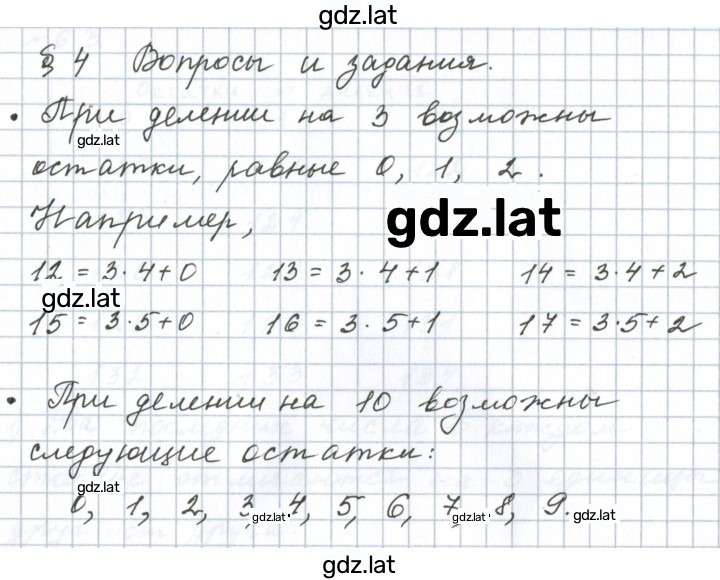 gdz.lat
§ 4 Вопросы и задания.
• При делении на 3 возможны
gdz.lat
остатки, равные 0, 1, 2.
Например,
gdz.lat
12 = 3·4+0 13 = 3·4+1 14 = 3·4+2
gdz.lat
15 = 3·5+0 16 = 3·5+1 17 = 3·5+2
• При делении на 10 возможны
следующие остатки:
gdz.lat
0, 1, 2, 3, 4, 5, 6, 7, 8, 9.
gdz.lat gdz.lat gdz.lat
gdz.lat